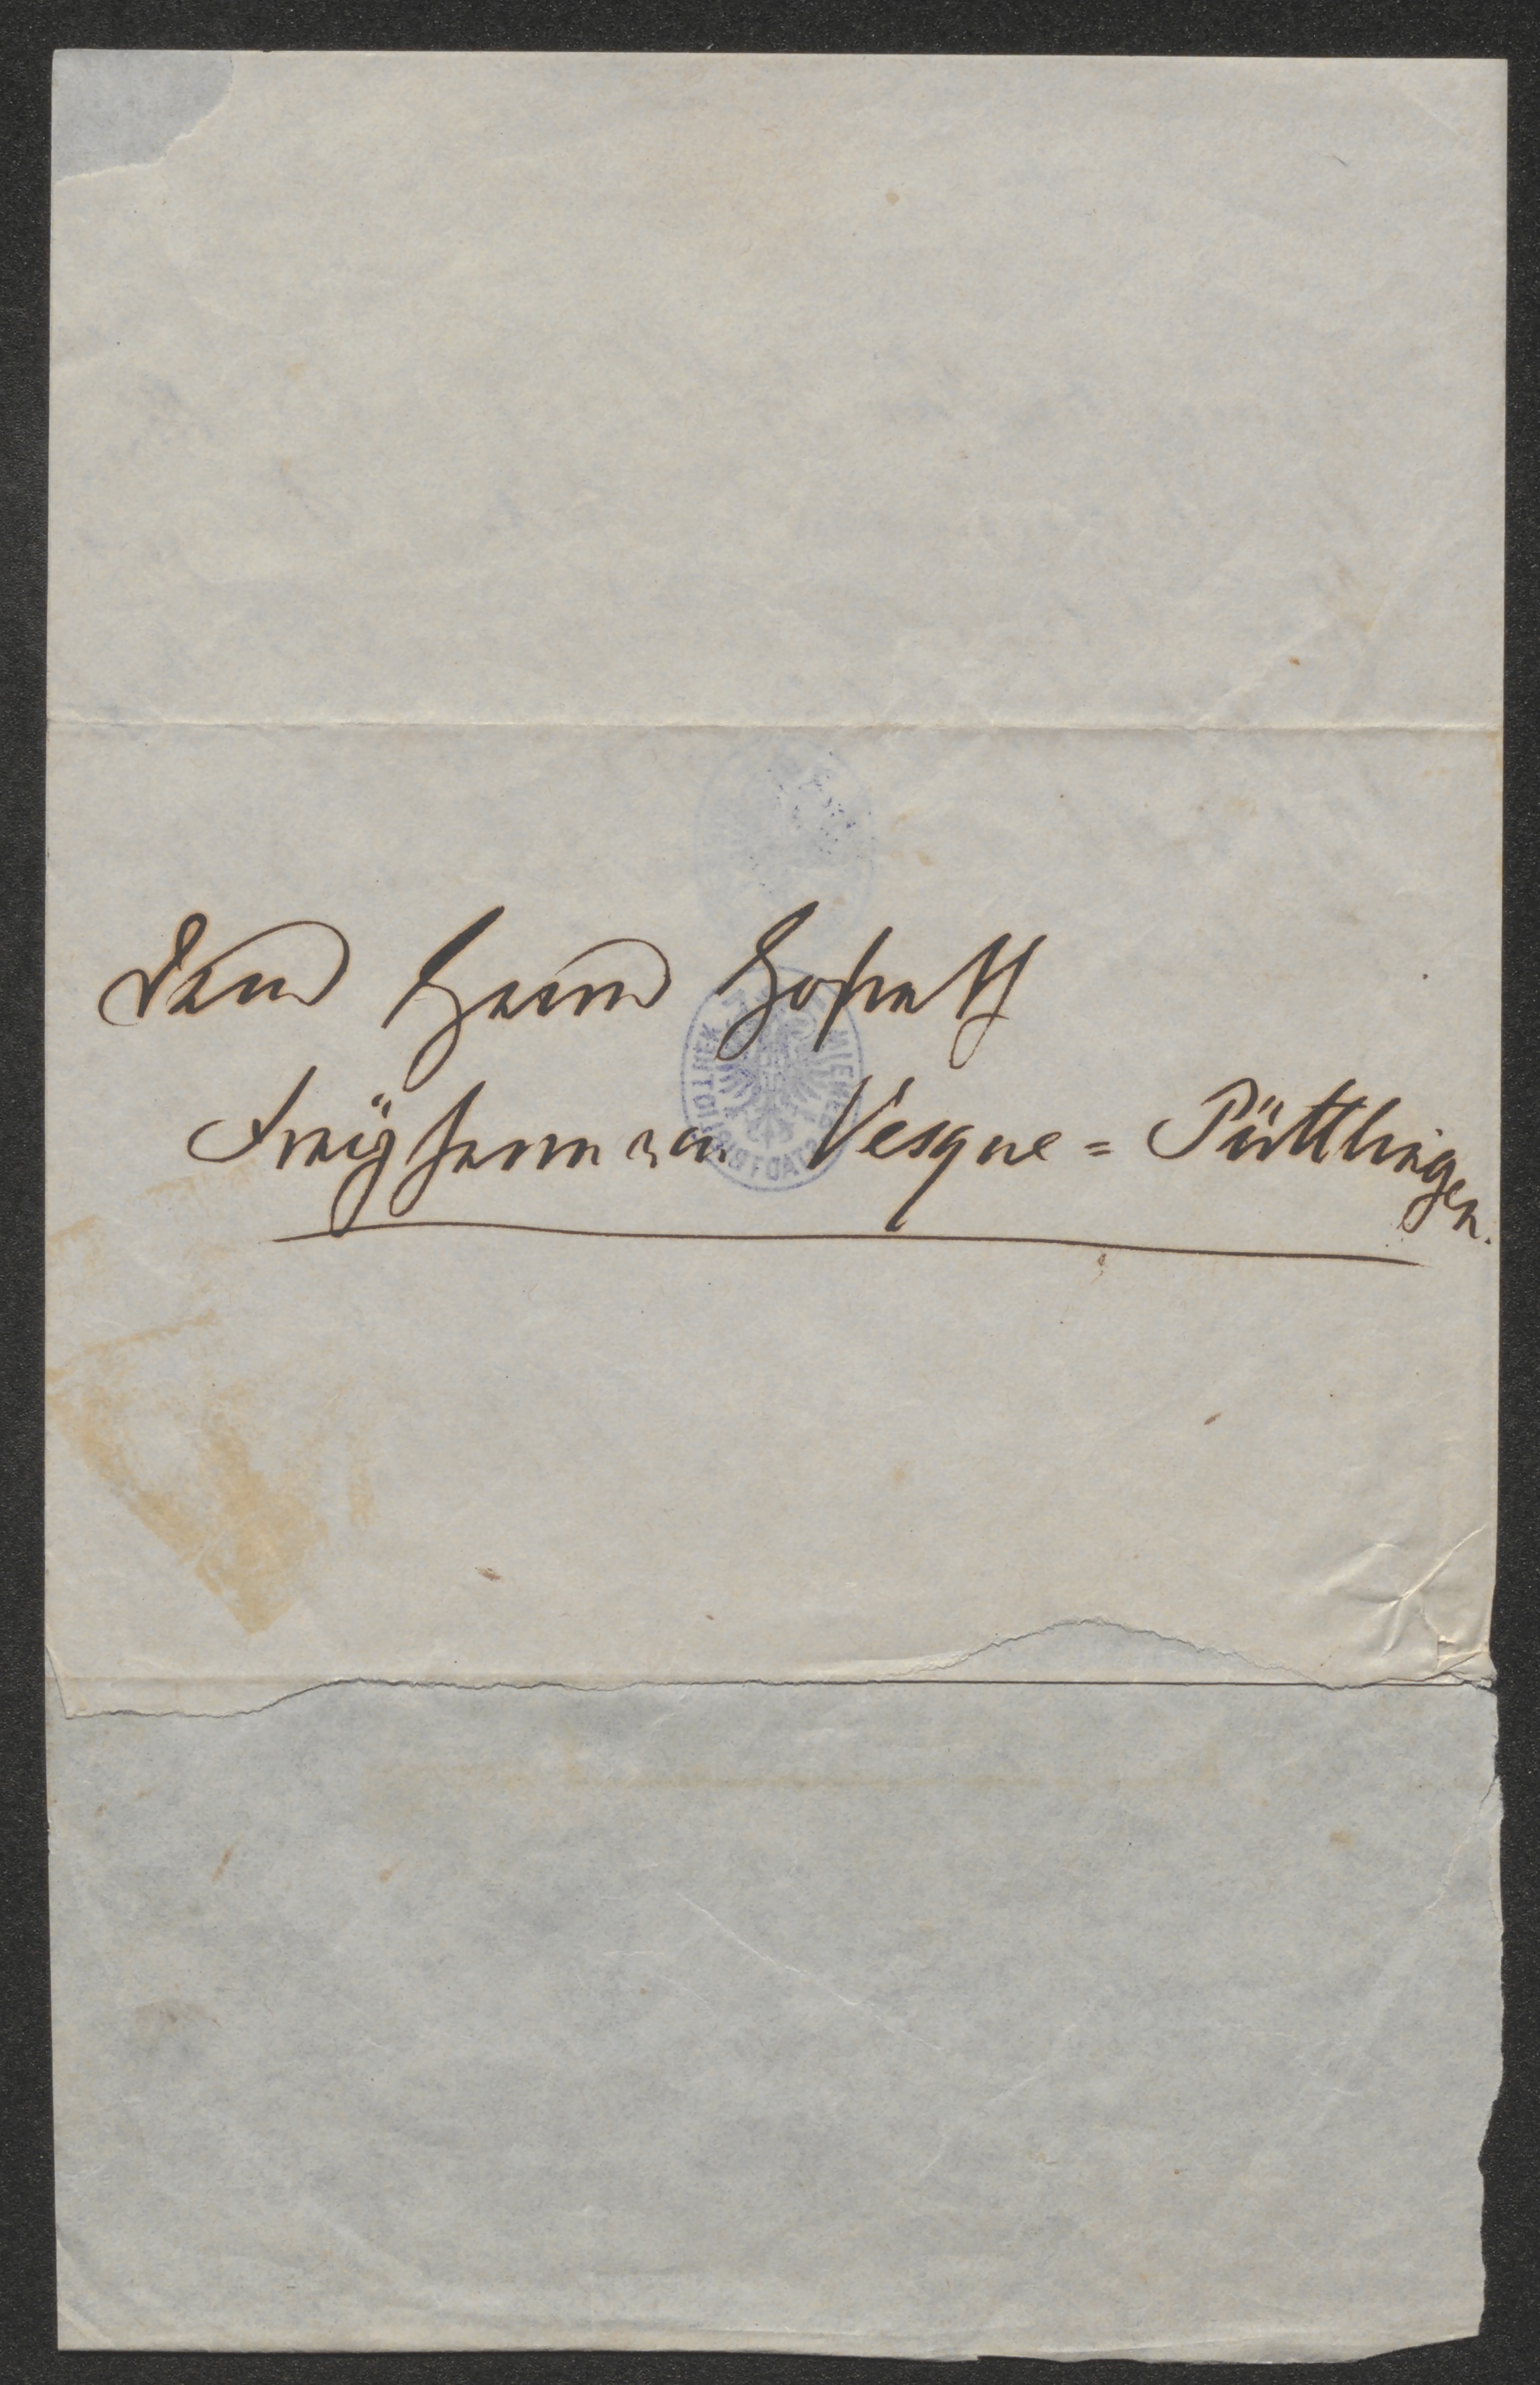 Dem Herrn Hofrath
Freÿherrn von Vesque = Püttlingen.